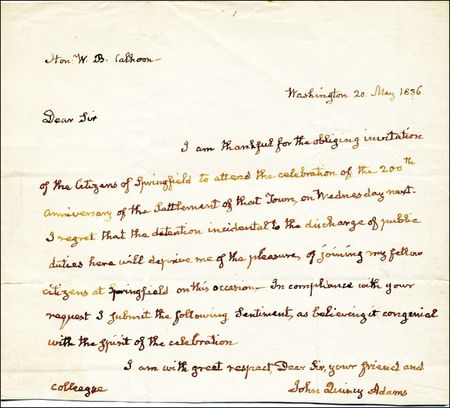 Hon. W. B. Calhoon —
Washington 20. May 1836.
Dear Sir
I am thankful for the obliging invitation
of the Citizens of Springfield to attend the celebration of the 200th
anniversary of the Settlement of that Town, on Wednesday next.
I regret that the detention incidental to the discharge of public
duties here will deprive me of the pleasure, of joining my fellow
citizens at Springfield on this occasion — In compliance with your
request I submit the following Sentiment, as believing it congenial
with the spirit of the celebration
I am with great respect, Dear Sir, your friend and
Colleague
John Quincy Adams